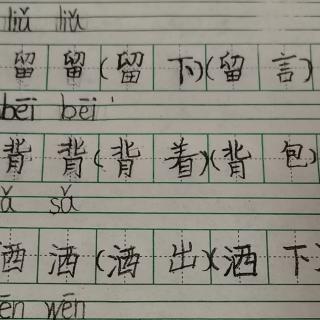 liǔ liǔ
留 留(留 下)(留 言)
bēi bēi
背 背(背 着)(背 包)
ǎ sǎ
洒 洒(洒 出)(洒 下)
ēn wēn